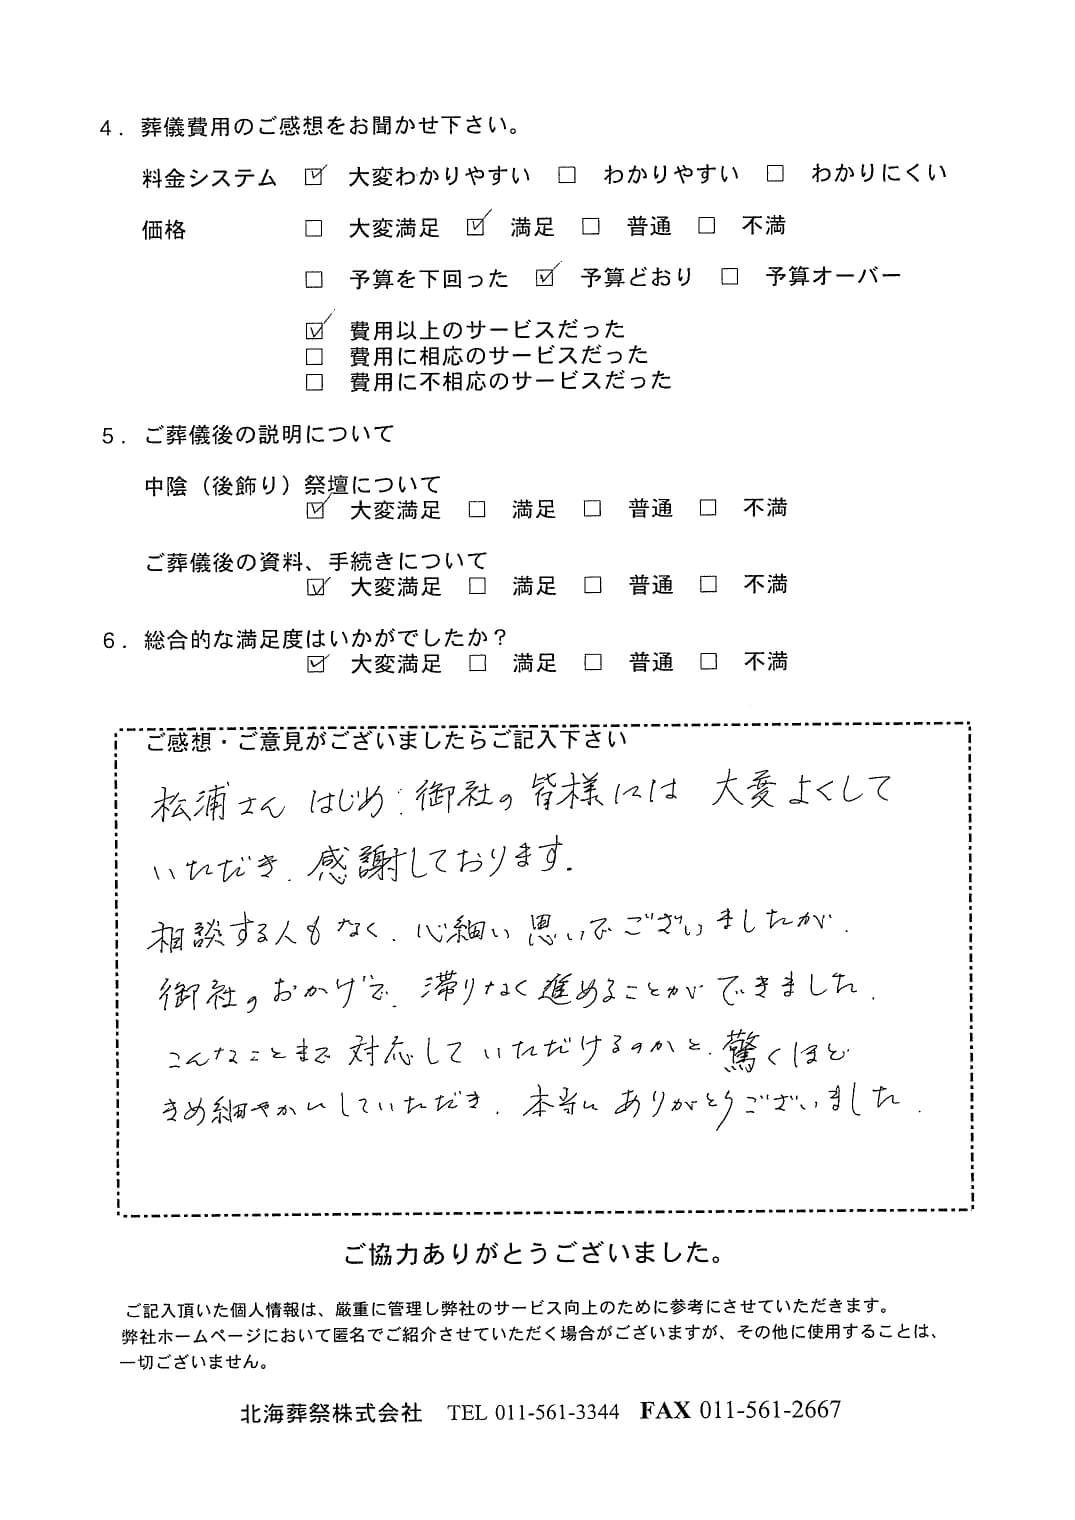 4．葬儀費用のご感想をお聞かせ下さい。
料金システム ☑ 大変わかりやすい □ わかりやすい □ わかりにくい
価格 □ 大変満足 ☑ 満足 □ 普通 □ 不満
□ 予算を下回った ☑ 予算どおり □ 予算オーバー
☑ 費用以上のサービスだった
□ 費用に相応のサービスだった
□ 費用に不相応のサービスだった
5．ご葬儀後の説明について
中陰（後飾り）祭壇について
☑ 大変満足 □ 満足 □ 普通 □ 不満
ご葬儀後の資料、手続きについて
☑ 大変満足 □ 満足 □ 普通 □ 不満
6．総合的な満足度はいかがでしたか？
☑ 大変満足 □ 満足 □ 普通 □ 不満
ご感想・ご意見がございましたらご記入下さい
松浦さんはじめ、御社の皆様には大変よくして
いただき、感謝しております。
相談する人もなく、心細い思いでございましたが、
御社のおかげで、滞りなく進めることができました。
こんなことまで対応していただけるのかと、驚くほど
きめ細やかにしていただき、本当にありがとうございました。
ご協力ありがとうございました。
ご記入頂いた個人情報は、厳重に管理し弊社のサービス向上のために参考にさせていただきます。
弊社ホームページにおいて匿名でご紹介させていただく場合がございますが、その他に使用することは、
一切ございません。
北海葬祭株式会社 TEL 011-561-3344 FAX 011-561-2667